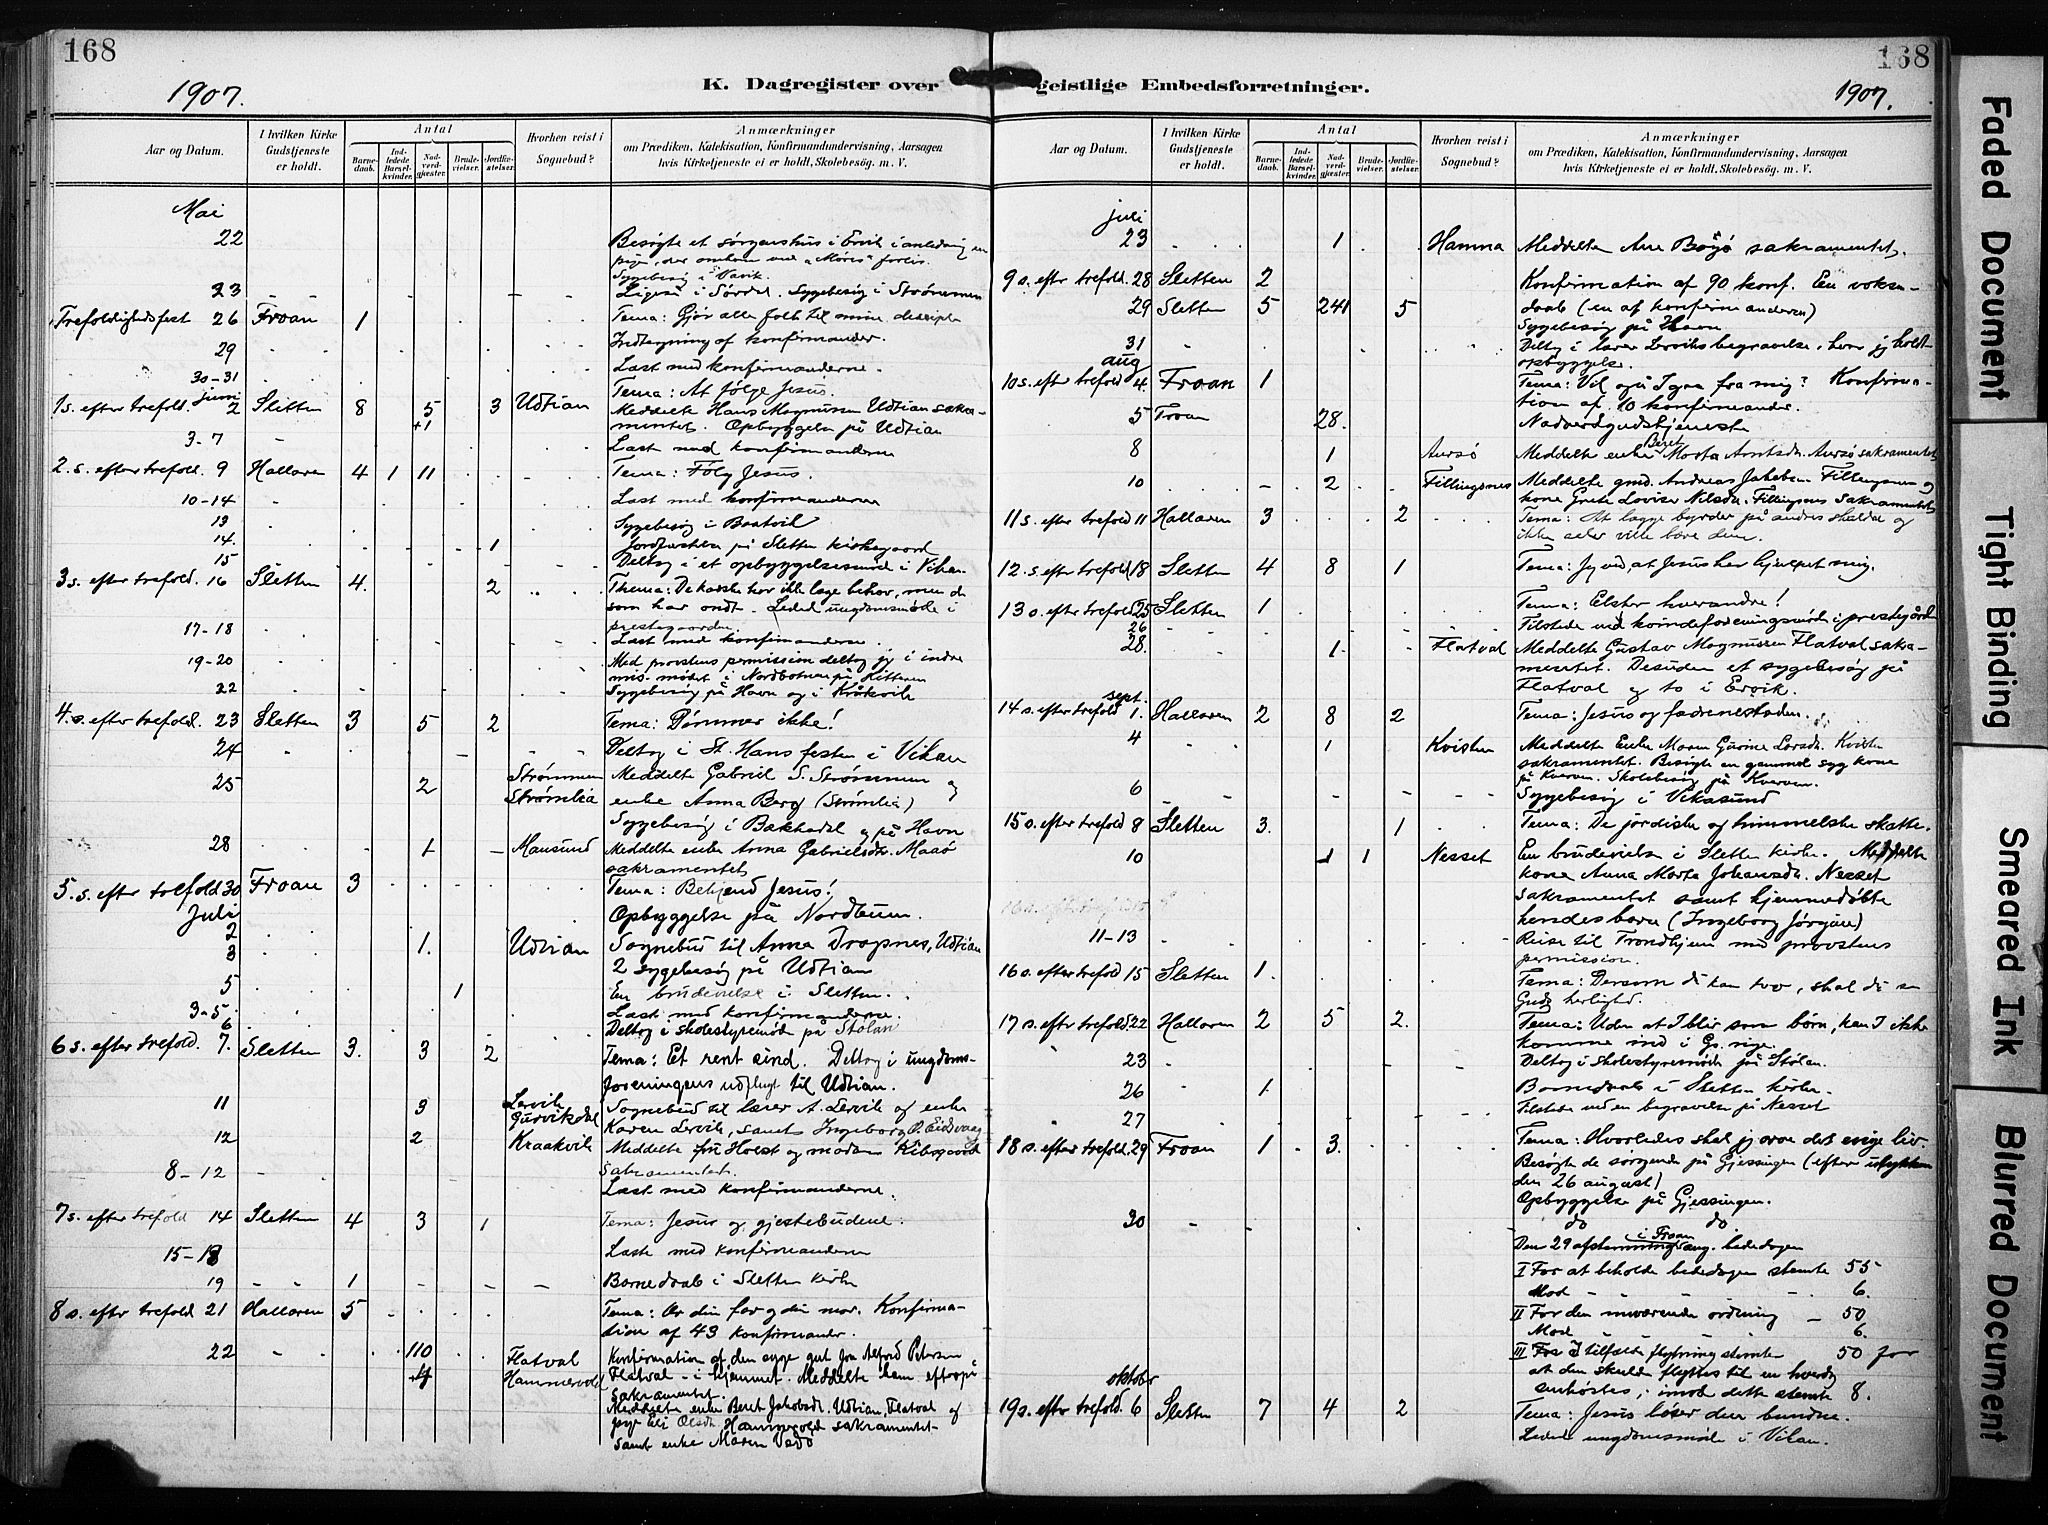 168
1907.
K. Dagregister over
Aar og Datum.
I hvilken Kirke Gudstjeneste er holdt.
Antal
Barnedaab.
Indledede Barselkvinder.
Nadverdgjester.
Brudevielser.
Jordfæstelser.
Hvorhen reist i Sognebud?
Anmærkninger
om Prædiken, Katekisation, Konfirmandundervisning, Aarsagen
hvis Kirketjeneste ei er holdt, Skolebesøg. m. V.
Mai
22 Besøgte et sørgenshus i Ervik i anledning en
pige, der omkom ved „Møres" forlis.
Sygebesøg i Vavik.
23 Ligesaa i Sørdal. Sygebesøg i Strømmen
Trefoldighedsfest 26 Froan 1 Tema: Gjør alle folk til mine disciple
Indtegning af konfirmander.
29
Læst med konfirmanderne.
30-31
Tema: At følge Jesus.
juni
1 s. efter trefold. 2 Sletten 8 5 +1 3 Udtian Meddelte Hans Magnussen Udtian sakra-
mentet. Opbyggelse på Udtian
3-7 Læst med konfirmanderne
2. s. efter trefold. 9 Hallaren 4 1 11 Tema: Følg Jesus.
10-14 Læst med konfirmanderne
13 Sygebesøg i Baatvik
14. 1 Jordfæstelse på Sletten kirkegaard
15 Deltog i et opbyggelsesmøde i Vikan
3 s. efter trefold. 16 Sletten 4. 2 Thema: De karske har ikke læge behov, men de
som har ondt. Leded ungdomsmøde i
prestegaarden.
17-18 Læst med konfirmanderne.
19-20 Med provstens permission deltog jeg i indre
mis. mødet i Nordbotnen på Hitteren
22 Sygebesøg på Havn og i Kråkvik
4. s. efter trefold. 23 Sletten 3 5 2 Tema: Dømmer ikke!
24 Deltog i St. Hans festen i Vikan
25 2 Strømmen Strømlia Meddelte Gabriel S. Strømmen og
enke Anna Berg (Strømlia)
Sygebesøg i Bækkedal og på Havn
28 1 Mausund Meddelte enke Anna Gabrielsdt. Maasø
sakramentet
5. s. efter tolfold 30 Froan 3 Tema: Bekjend Jesus!
Opbyggelse på Nordbuen.
Juli
2 1. Udtian Sognebud til Anna Dropnes, Udtian
3 2 sygebesøg på Udtian
5 1 En brudevielse i Sletten.
3-5 Læst med konfirmanderne.
6 Deltog i skolestyremøde på Stølan
6 s. efter trefold. 7. Sletten 3. 3 2 Tema: Et rent sind. Deltog i ungdoms-
foreningens udflugt til Udtian.
11 3 Lervik Gurvikdal Sognebud til lærer A. Lervik og enke
Karen Lervik, samt Ingeborg O. Eidsvaag
12 2 Kraakvik Meddelte frü Holst og madam Kibsgaard
sakramentet.
8-12 Læst med konfirmanderne.
7 s. efter trefold 14 Sletten 4 3 1 Tema: Jesus og gjestebudene.
15-18 Læste med konfirmanderne
19 1 Barnedaab i Sletten kirke
8 s. efter trefold 21 Hallaren 5 Tema: Ær din far og din mor. Konfirma-
tion af 43 konfirmander.
22 110 +4 Flatval Hammervold Konfirmation af den syge gut Jon Alfred Petersen
Flatval – i hjemmet. Meddelte ham efterpå
sakramentet.
Meddelte enke Beret Jakobsdt. Udtian, Flatval og
pige Eli Olsdt. Hammervold sakramentet
samt enke Maren Vedø
168
1907.
geistlige Embedsforretninger.
Aar og Datum.
I hvilken Kirke Gudstjeneste er holdt.
Antal
Barnedaab.
Indledede Barselkvinder.
Nadverdgjester.
Brudevielser.
Jordfæstelser.
Hvorhen reist i Sognebud?
Anmærkninger
om Prædiken, Katekisation, Konfirmandundervisning, Aarsagen
hvis Kirketjeneste ei er holdt. Skolebesøg. m. V.
juli
23 1 Hamna Meddelte Ane Bøgø sakramentet.
9 s. efter trefold. 28 Sletten 2 Konfirmation af 90 konf. En voksen-
29 Sletten 5 241 5 daab (en af konfirmanderne)
Sygebesøg på Havn
31 Deltog i lærer Lerviks begravelse, hvor jeg holdt
opbyggelse.
aug
10 s. efter trefold. 4. Froan 1 Tema: Vil også I gaa fra mig? Konfirma-
tion af 10 konfirmander.
5 Froan 28. Nadverdgudstjeneste
8 1 Aursø Meddelte enke Beret Marta Arntsdt. Aursø sakramentet
10 2 Fillingsnes Meddelte gmd. Andreas Jakobsen Fillingsnes og
kone Grete Lovise Nilsdt. Fillingsnes sakramentet
11 s. efter trefold 11 Hallaren 3 2 Tema: At lægge byrder på andres skuldre og
ikke selv ville bære dem.
12. s. efter trefold 18 Sletten 4 8 1 Tema: Jeg ved, at Jesus har hjulpet mig.
13 s. efter trefold 25 Sletten 1 Tema: Elsker hverandre!
26 Tilstede ved kvindeforeningsmøde i prestegården
28. 1 Flatval Meddelte Gustav Magnussen Flatval sakra-
mentet. Desuden et sygebesøg på
Flatval og to i Ervik.
sept.
14 s. efter trefold 1. Hallaren 2 8 2 Tema: Jesus og fædrenestaden.
4 1 Kvisten Meddelte Enke Maren Gurine Larsdt. Kvisten
sakramentet. Besøgte en gammel syg kone
på Kverven. Skolebesøg på Kverven.
6 Sygebesøg i Vikasund
15 s. efter trefold 8 Sletten 3. 1 Tema: De jordiske og himmelske skatte.
10 1 1 Nesset En brudevielse i Sletten kirke. Meddelte
kone Anna Marta Johansdt. Nesset
sakramentet samt hjemmedøbte
hendes barn (Ingeborg Jørgine)
11-13 Reise til Trondhjem med provstens
permission.
16 s. efter trefold 15 Sletten 1. Tema: Dersom du kan tro, skal du se
Guds herlighed.
17 s. efter trefold 22 Hallaren 2 5 2. Tema: Uden at I blir som børn, kan I ikke
komme ind i Gs. rige.
23 Deltog i skolestyremøde på Stølan.
26 1 Barnedaab i Sletten kirke.
27 Tilstede ved en begravelse på Nesset
18 s. efter trefold. 29 Froan 1 3. Tema: Hvorledes skal jeg arve det evige liv.
Besøgte de sørgende på Gjessingen (efter ulykken
den 26 august)
Opbyggelse på Gjessingen.
30 do do
Den 29 afstemning i Froan ang. bededagen
I For at beholde bededagen stemte 55
Mod 6.
II For den nuværende ordning 50
Mod 6.
III For I tilfælde flytning stemte 50 for
at den skulde flyttes til en hverdag
enkostes, imod dette stemte 8.
oktober
19 s. efter trefold. 6 Sletten 7 4 2 Tema: Jesus løser den bundne.
Ledede ungdomsmøde i Vikan.
Faded Document
Tight Binding
Smeared Ink
Blurred Document